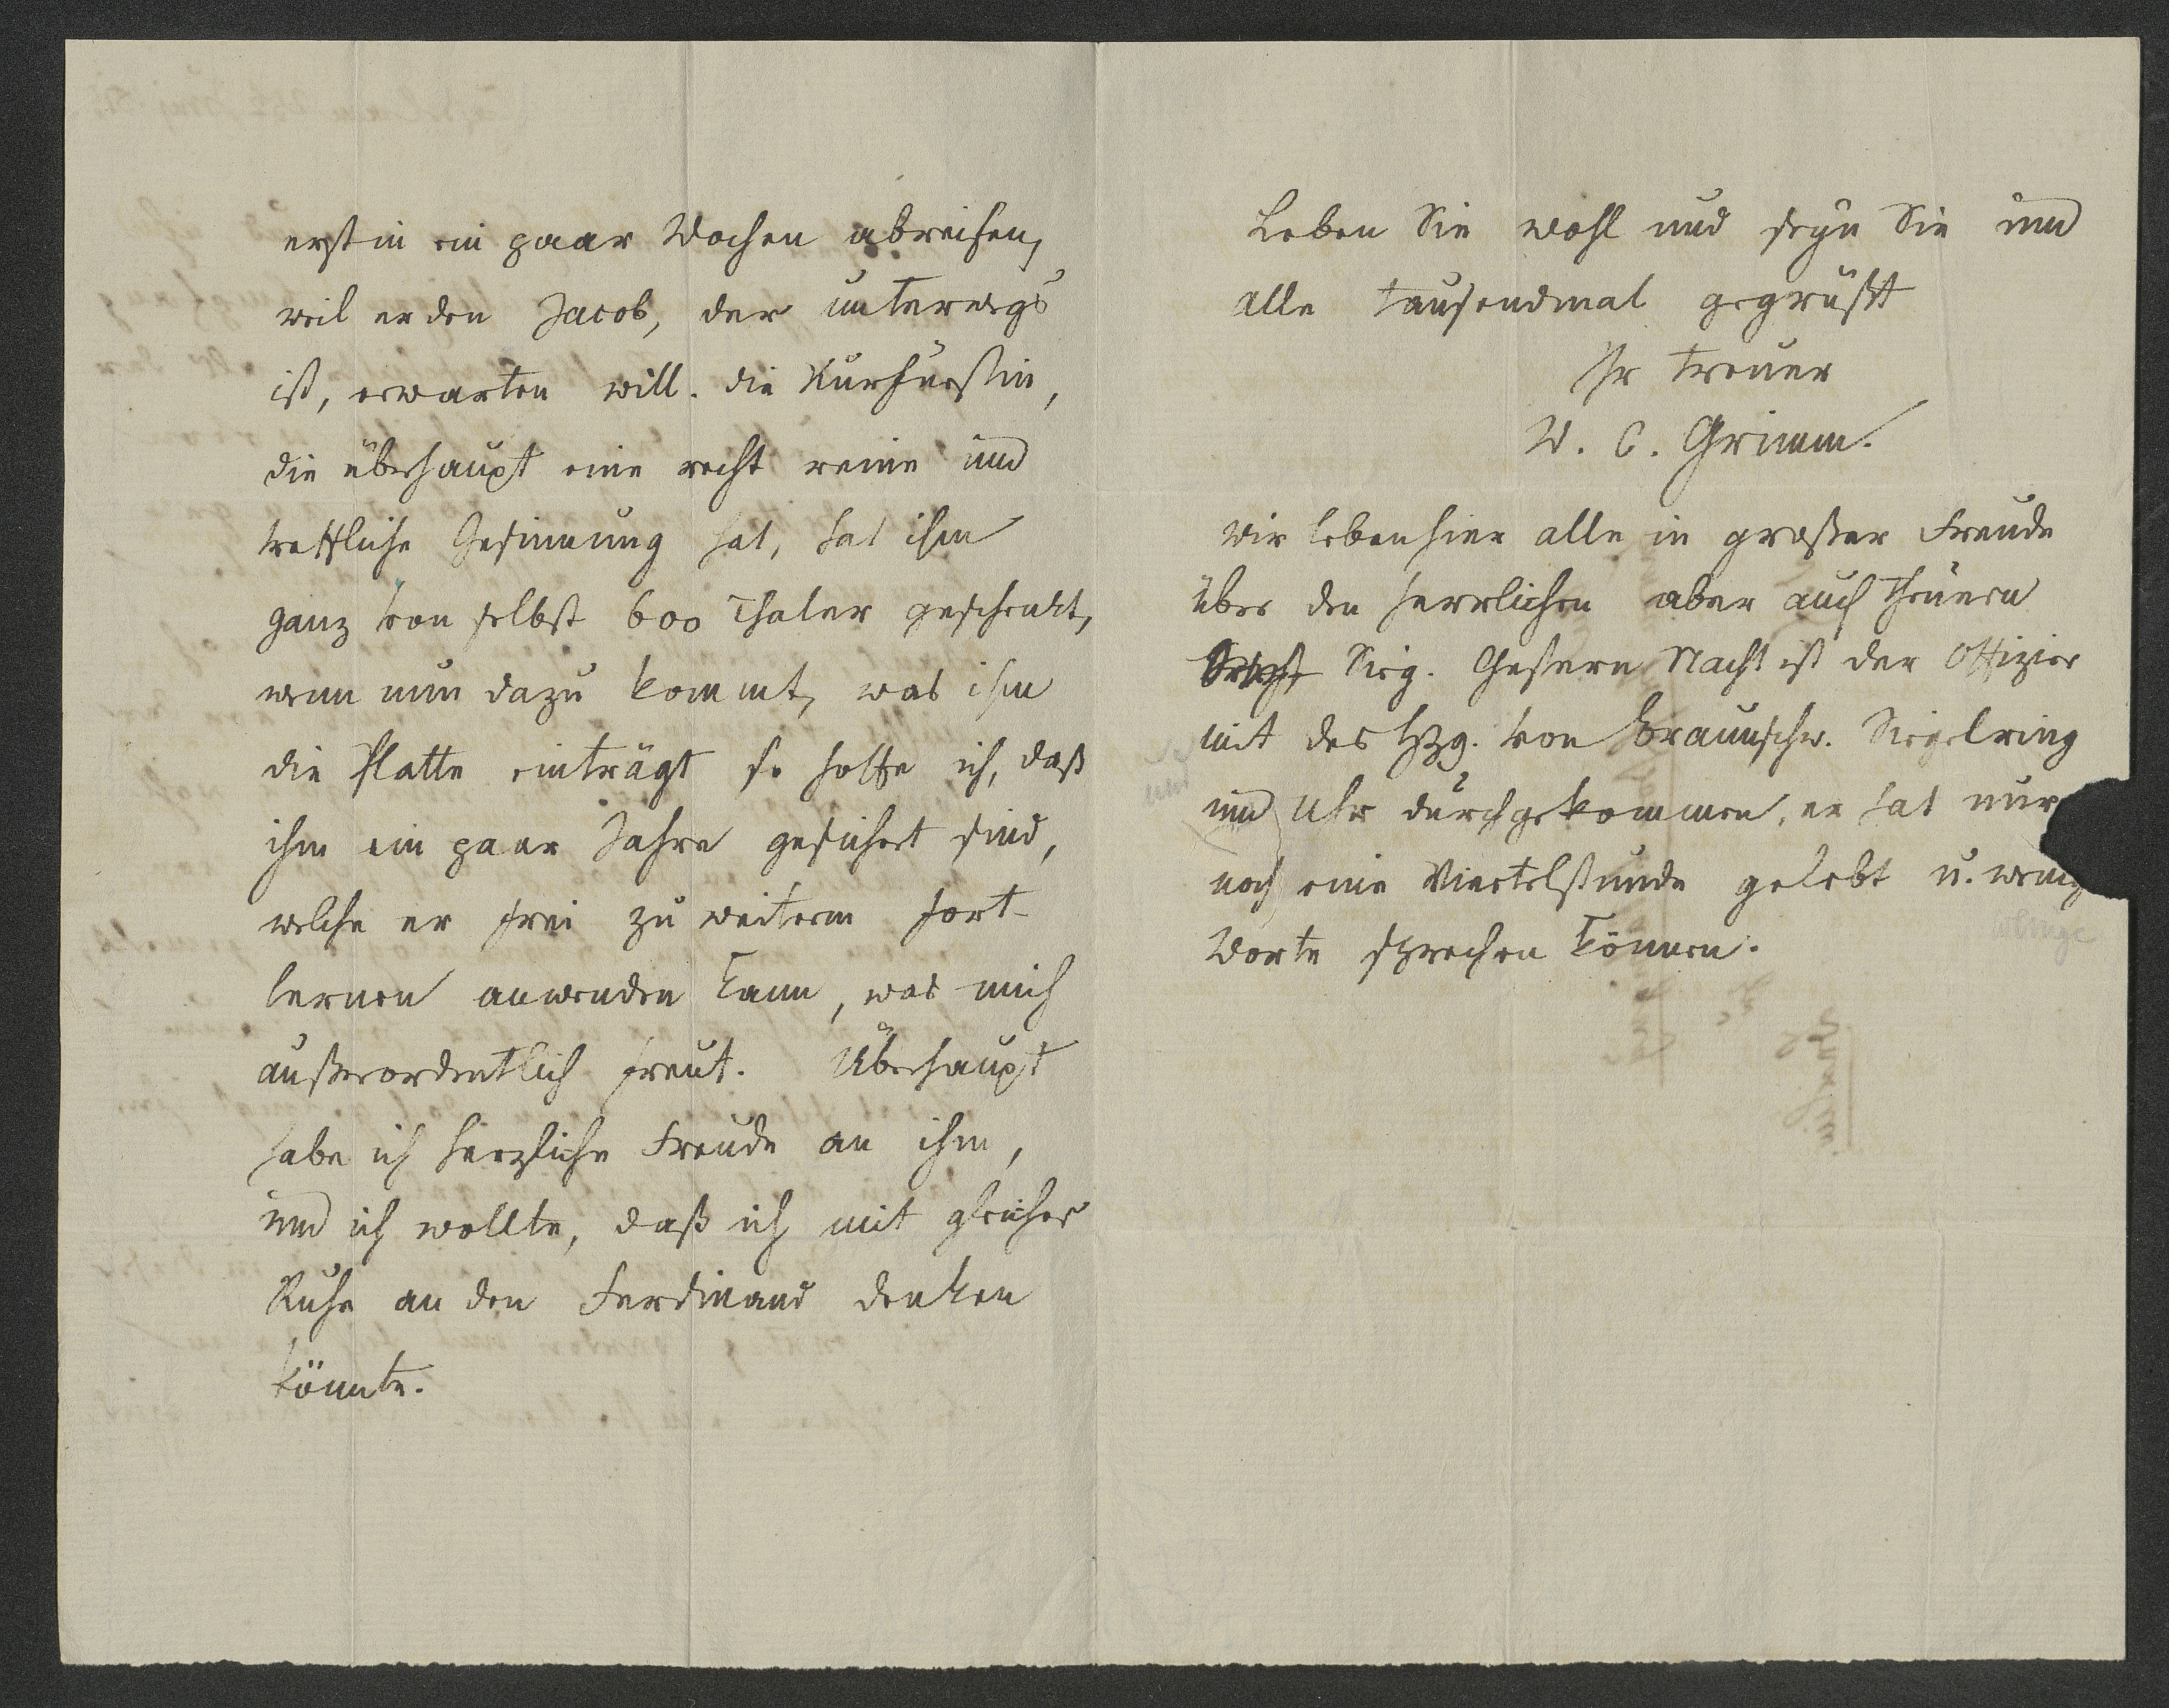 erst in ein paar Wochen abreisen,
weil er den Jacob, der unterwegs
ist, erwarten will. die Kurfürstin,
die überhaupt eine recht reine und
treffliche Gesinnung hat, hat ihm
ganz von selbst 600 Thaler geschenkt,
wenn nun dazu kommt, was ihm
die Platte einträgt so hoffe ich, daß
ihm ein paar Jahre gesichert sind,
welche er frei zu weiterm Fort-
lernen anwenden kann, was mich
außerordentlich freut. Überhaupt
habe ich herzliche Freude an ihm,
und ich wollte, daß ich mit gleicher
Ruhe an den Ferdinand denken
könnte.
Leben Sie wohl und seyn Sie und
alle tausendmal gegrüßt
Ihr treuer
W. C. Grimm.
Wir leben hier alle in großer Freude
über den herrlichen aber auch theuern
Sieg. Gestern Nacht ist der Offizier
mit des Hzg. von Braunschw. Siegelring
und Uhr durchgekommen, er hat nur
noch eine Viertelstunde gelebt u. wenig
Worte sprechen können.
und
wenige